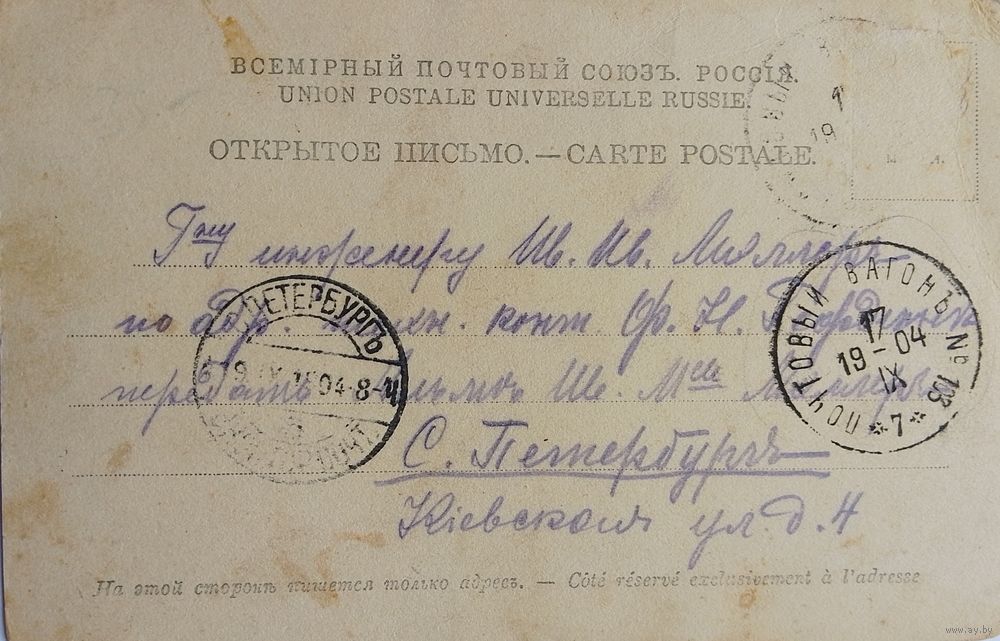 ВСЕМІРНЫЙ ПОЧТОВЫЙ СОЮЗЪ. РОССІЯ.
UNION POSTALE UNIVERSELLE RUSSIE.
ОТКРЫТОЕ ПИСЬМО.—CARTE POSTALE.
19
Гну инженеру Ив. Ив. Миллеръ
по адр. конт. Ф. Н.
передать Ив.
С. Петербургъ
Кіевская ул. д. 4
ПЕТЕРБУРГЪ
04-8-
ПОЧТОВЫЙ ВАГОНЪ № 103
17
19-04
IX
*7*
На этой сторонѣ пишется только адресъ. — Côté réservé exclusivement à l'adresse
www.ay.by